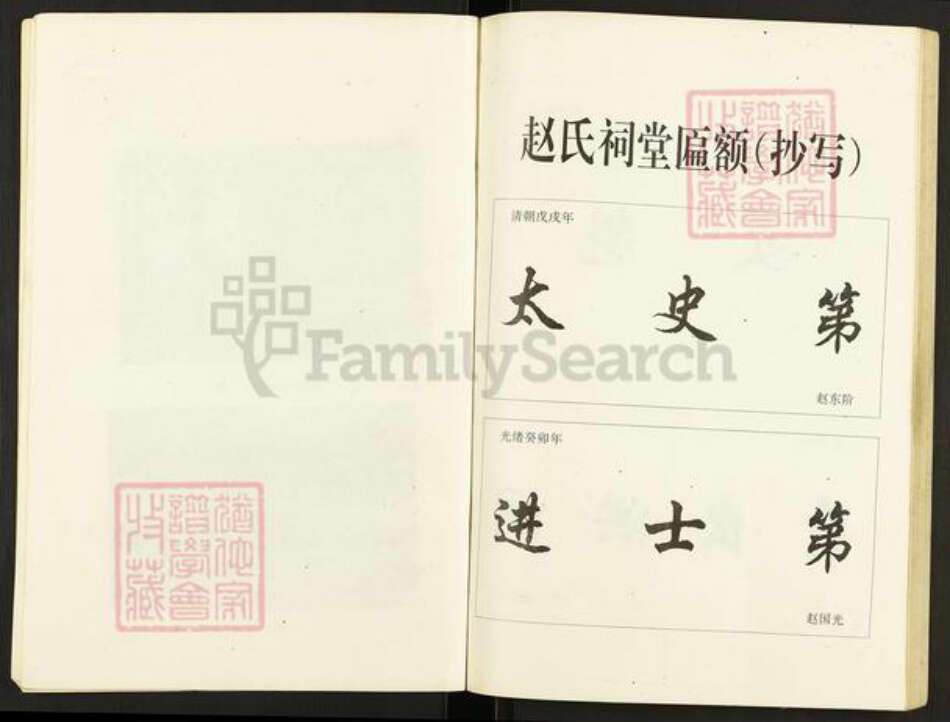 赵氏祠堂匾额(抄写)
清朝戊戌年
太史第
赵东阶
光绪癸卯年
进士第
赵国光
FamilySearch